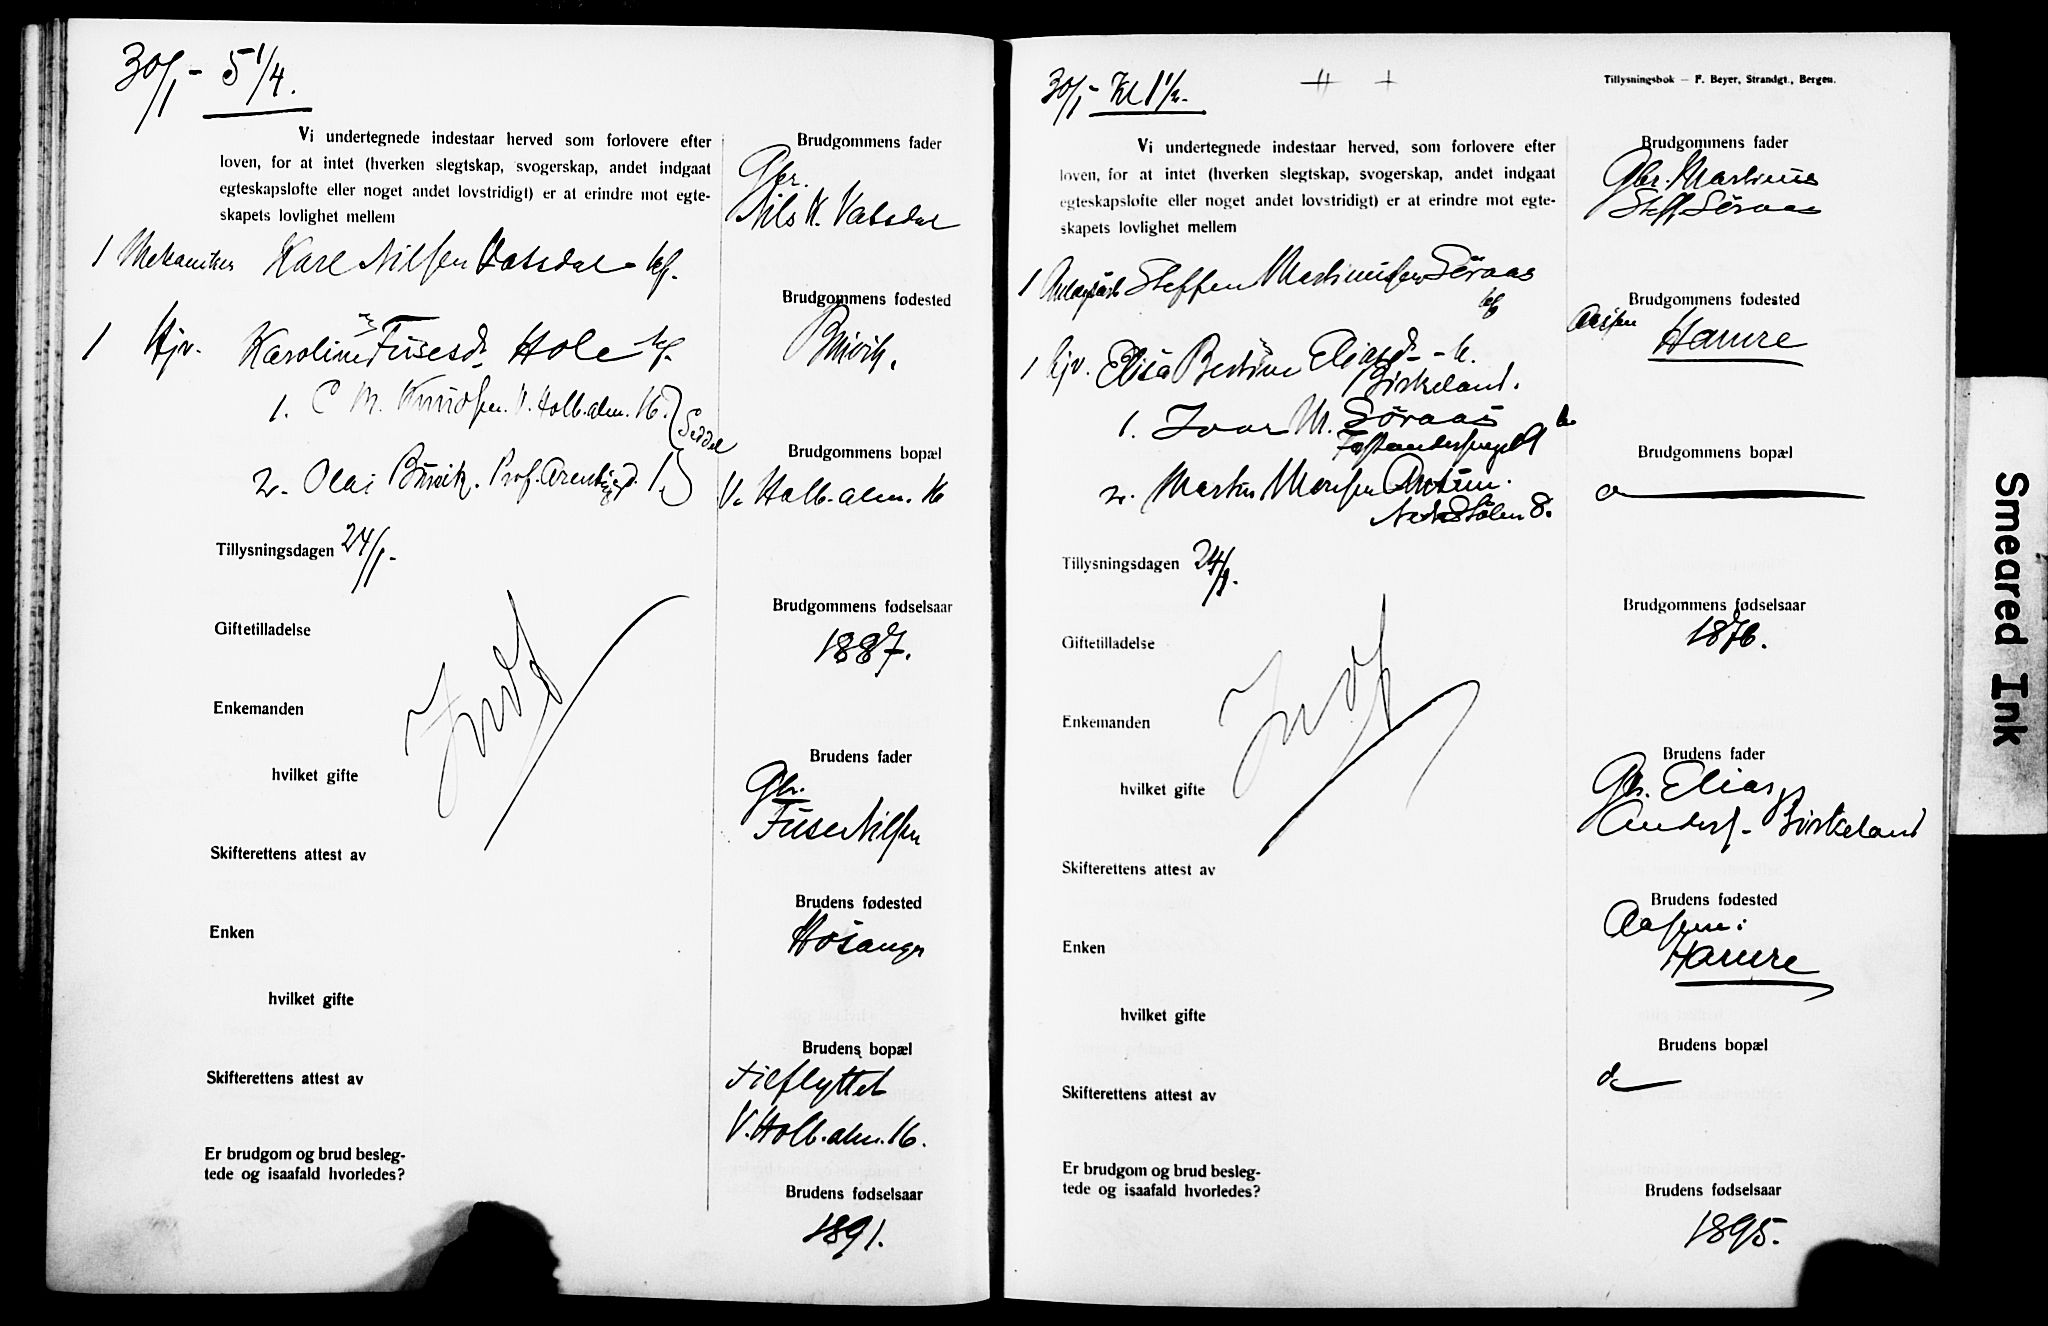 30/1 - 5 1/4.
Vi undertegnede indestaar herved som forlovere efter
loven, for at intet (hverken slegtskap, svogerskap, andet indgaat
egteskapsløfte eller noget andet lovstridigt) er at erindre mot egte-
skapets lovlighet mellem
1 Mekaniker Karl Nilsen Vatsdal
1 Hjv. Karoline Fusesdr Hole
1. C M. Knudsen. V. Holb. alm. 16.
Seddel
2. Olai Buvik. Prof.
Tillysningsdagen 24/1.
Giftetilladelse
Enkemanden
hvilket gifte
Skifterettens attest av
Enken
hvilket gifte
Skifterettens attest av
Er brudgom og brud besleg-
tede og isaafald hvorledes?
Brudgommens fader
Gbr.
Nils K. Vatsdal
Brudgommens fødested
Buvik.
Brudgommens bopæl
V. Holb. alm. 16
Brudgommens fødselsaar
1887.
Brudens fader
Gbr.
Fuse Nilsen
Brudens fødested
Hosanger
Brudens bopæl
Tilflyttet
V. Holb. alm. 16.
Brudens fødselsaar
1891.
30/1 - Kl 1 1/2.
Tillysningsbok — F. Beyer, Strandgt., Bergen.
Vi undertegnede indestaar herved, som forlovere efter
loven, for at intet (hverken slegtskap, svogerskap, andet indgaat
egteskapsløfte eller noget andet lovstridigt) er at erindre mot egte-
skapets lovlighet mellem
1 Steffen Martinussen Søraas
1 hjv. Elisa Bertine Eliasdr
Birkeland.
1. Ivar M. Søraas
2. Martin Monsen
Nedre Stølen 8.
Tillysningsdagen 24/1.
Giftetilladelse
Enkemanden
hvilket gifte
Skifterettens attest av
Enken
hvilket gifte
Skifterettens attest av
Er brudgom og brud besleg-
tede og isaafald hvorledes?
Brudgommens fader
Gbr. Martinus
Steff Søraas
Brudgommens fødested
Hamre
Brudgommens bopæl
Brudgommens fødselsaar
1876.
Brudens fader
Gbr. Elias
Anders. Birkeland
Brudens fødested
Hamre
Brudens bopæl
Brudens fødselsaar
1895.
Smeared Ink